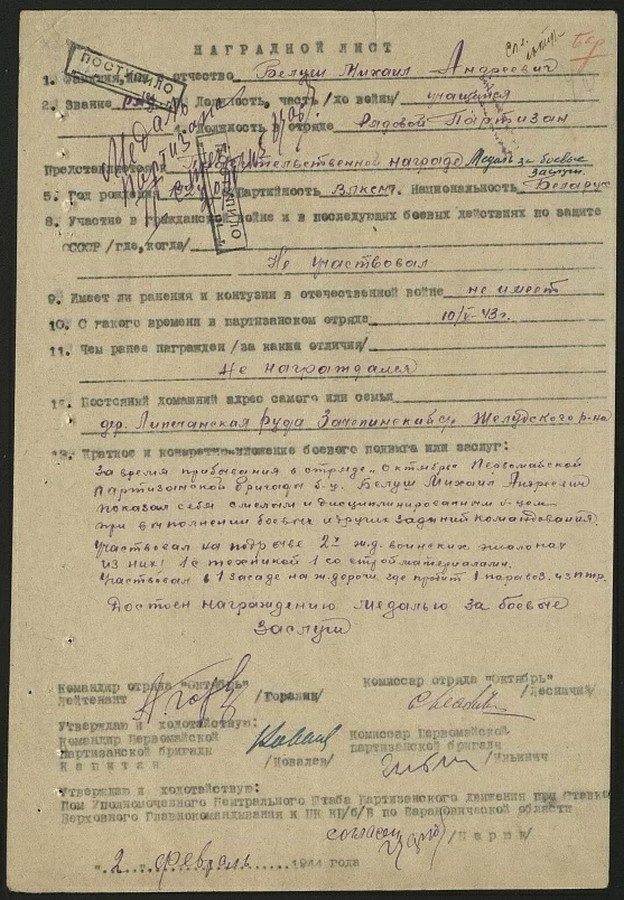 НАГРАДНОЙ ЛИСТ
ПОСТУПИЛО
1. Фамилия, имя и отчество Белуш Михаил Андреевич
2. Звание Должность, часть /до войны/ учащийся
Должность в отряде Рядовой Партизан
Медаль партизана
Представляется к Правительственной награде Медаль за боевые
заслуги.
5. Год рождения Партийность ВЛКСМ 7. Национальность Беларус
8. Участие в гражданской войне и в последующих боевых действиях по защите
СССР /где, когда/
Не участвовал
9. Имеет ли ранения и контузии в отечественной войне не имеет
10. С какого времени в партизанском отряде 10/V-43г.
11. Чем ранее награжден /за какие отличия/
Не награждался
12. Постоянный домашний адрес самого или семьи
дер. Липчанская Руда Зачепинский с/с Желудского р-на
13. Краткое и конкретное изложение боевого подвига или заслуг:
За время прибывания в отряде „Октябрь" Первомайской
Партизанской бригады б-ц. Белуш Михаил Андреевич
показал себя смелым и дисциплинированым б-цом
при выполнении боевых и других заданий командования.
Участвовал на подрыве 2х ж.д. воинских эшалонах
из них: 1 с техникой 1 со стройматериалами.
Участвовал в 1 засаде на ж.дороги, где 1 паравоз. из ПТР.
Достоен награждению медалью за боевые
Заслуги
Командир отряда "Октябрь"
Лейтенант /Горалик/
Комиссар отряда "Октябрь"
/Лесничий/
Утверждаю и ходотайствую:
Командир Первомайской
партизанской бригады
Капитан /Ковалев/
Комиссар Первомайской
партизанской бригады
/Ильинич/
Утверждаю и ходотайствую:
Пом Уполномоченного Центрального Штаба Партизанского движения при Ставке
Верховного Главнокомандывания и ЦК КП/б/Б по Барановичской области
согласен /Царюк/
"2" февраль 1944 года